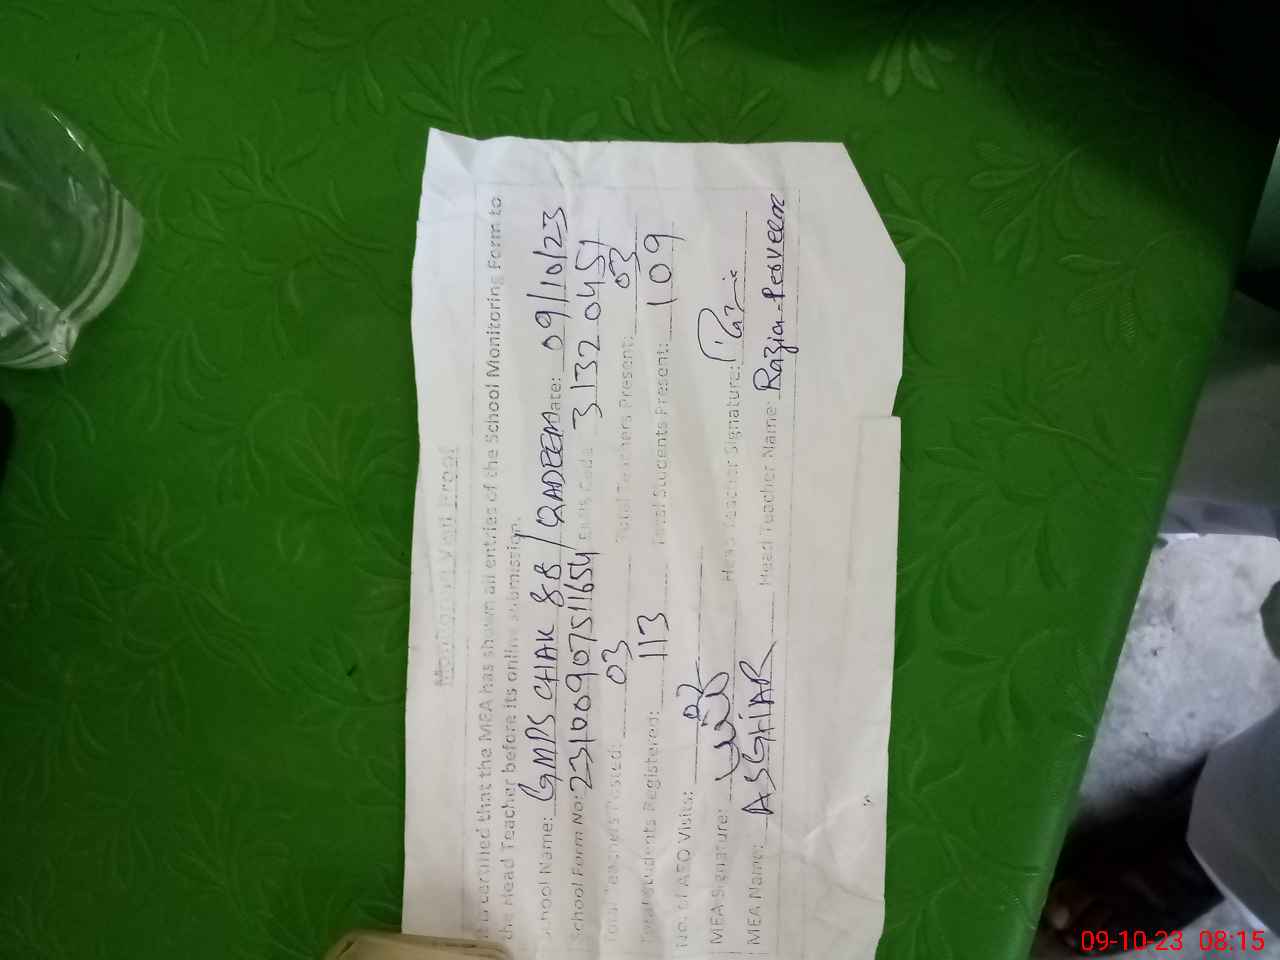 Monitoring Visit Proof
It is certified that the MEA has shown all entries of the School Monitoring Form to
the Head Teacher before its online submission.
School Name: GMPS CHAK 88/QADEEM Date: 09/10/23
School Form No: 23100907511654 EMIS Code 31320451
Total Teachers Posted: 03 Total Teachers Present: 03
Total Students Registered: 113 Total Students Present: 109
No. of AEO Visits: 02
MEA Signature: Head Teacher Signature:
MEA Name: ASGHAR Head Teacher Name: Razia Perveen
09-10-23 08:15